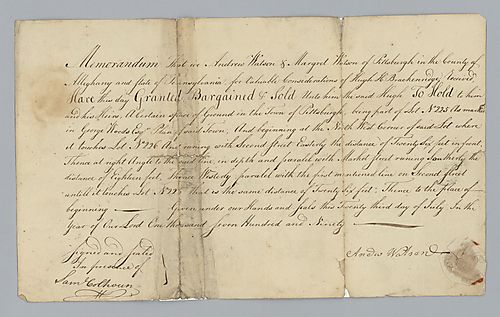 Memorandum that we Andrew Watson & Margret Watson of Pittsburgh in the County of
Alleghany and State of Pennsylvania for Valuable Considerations of Hugh H. Brackenridge received
Have this day Granted Bargained & Sold Unto him the said Hugh To Hold to him
and his Heirs, A certain spot of Ground in the Town of Pittsburgh, being part of Lot No 225 As marked
in George Woods Esqr Plan of said Town, And beginning at the North West Corner of said Lot where
it touches Lot No 226 And running with Second Street Easterly the distance of Twenty six feet in front,
Thence at right Angle to the said line, in depth and paralel with Market Street running Southerly the
distance of Eighteen feet, Thence Westerly paralel with the first mentioned line on Second Street
untill it touches Lot No that is the same distance of Twenty Six feet; Thence to the place of
beginning Given under our Hands and Seals this Twenty third day of July In the
Year of Our Lord One thousand Seven Hundred and Ninety
Signed and Sealed
In presence of
Andw Watson
Saml Colhoun